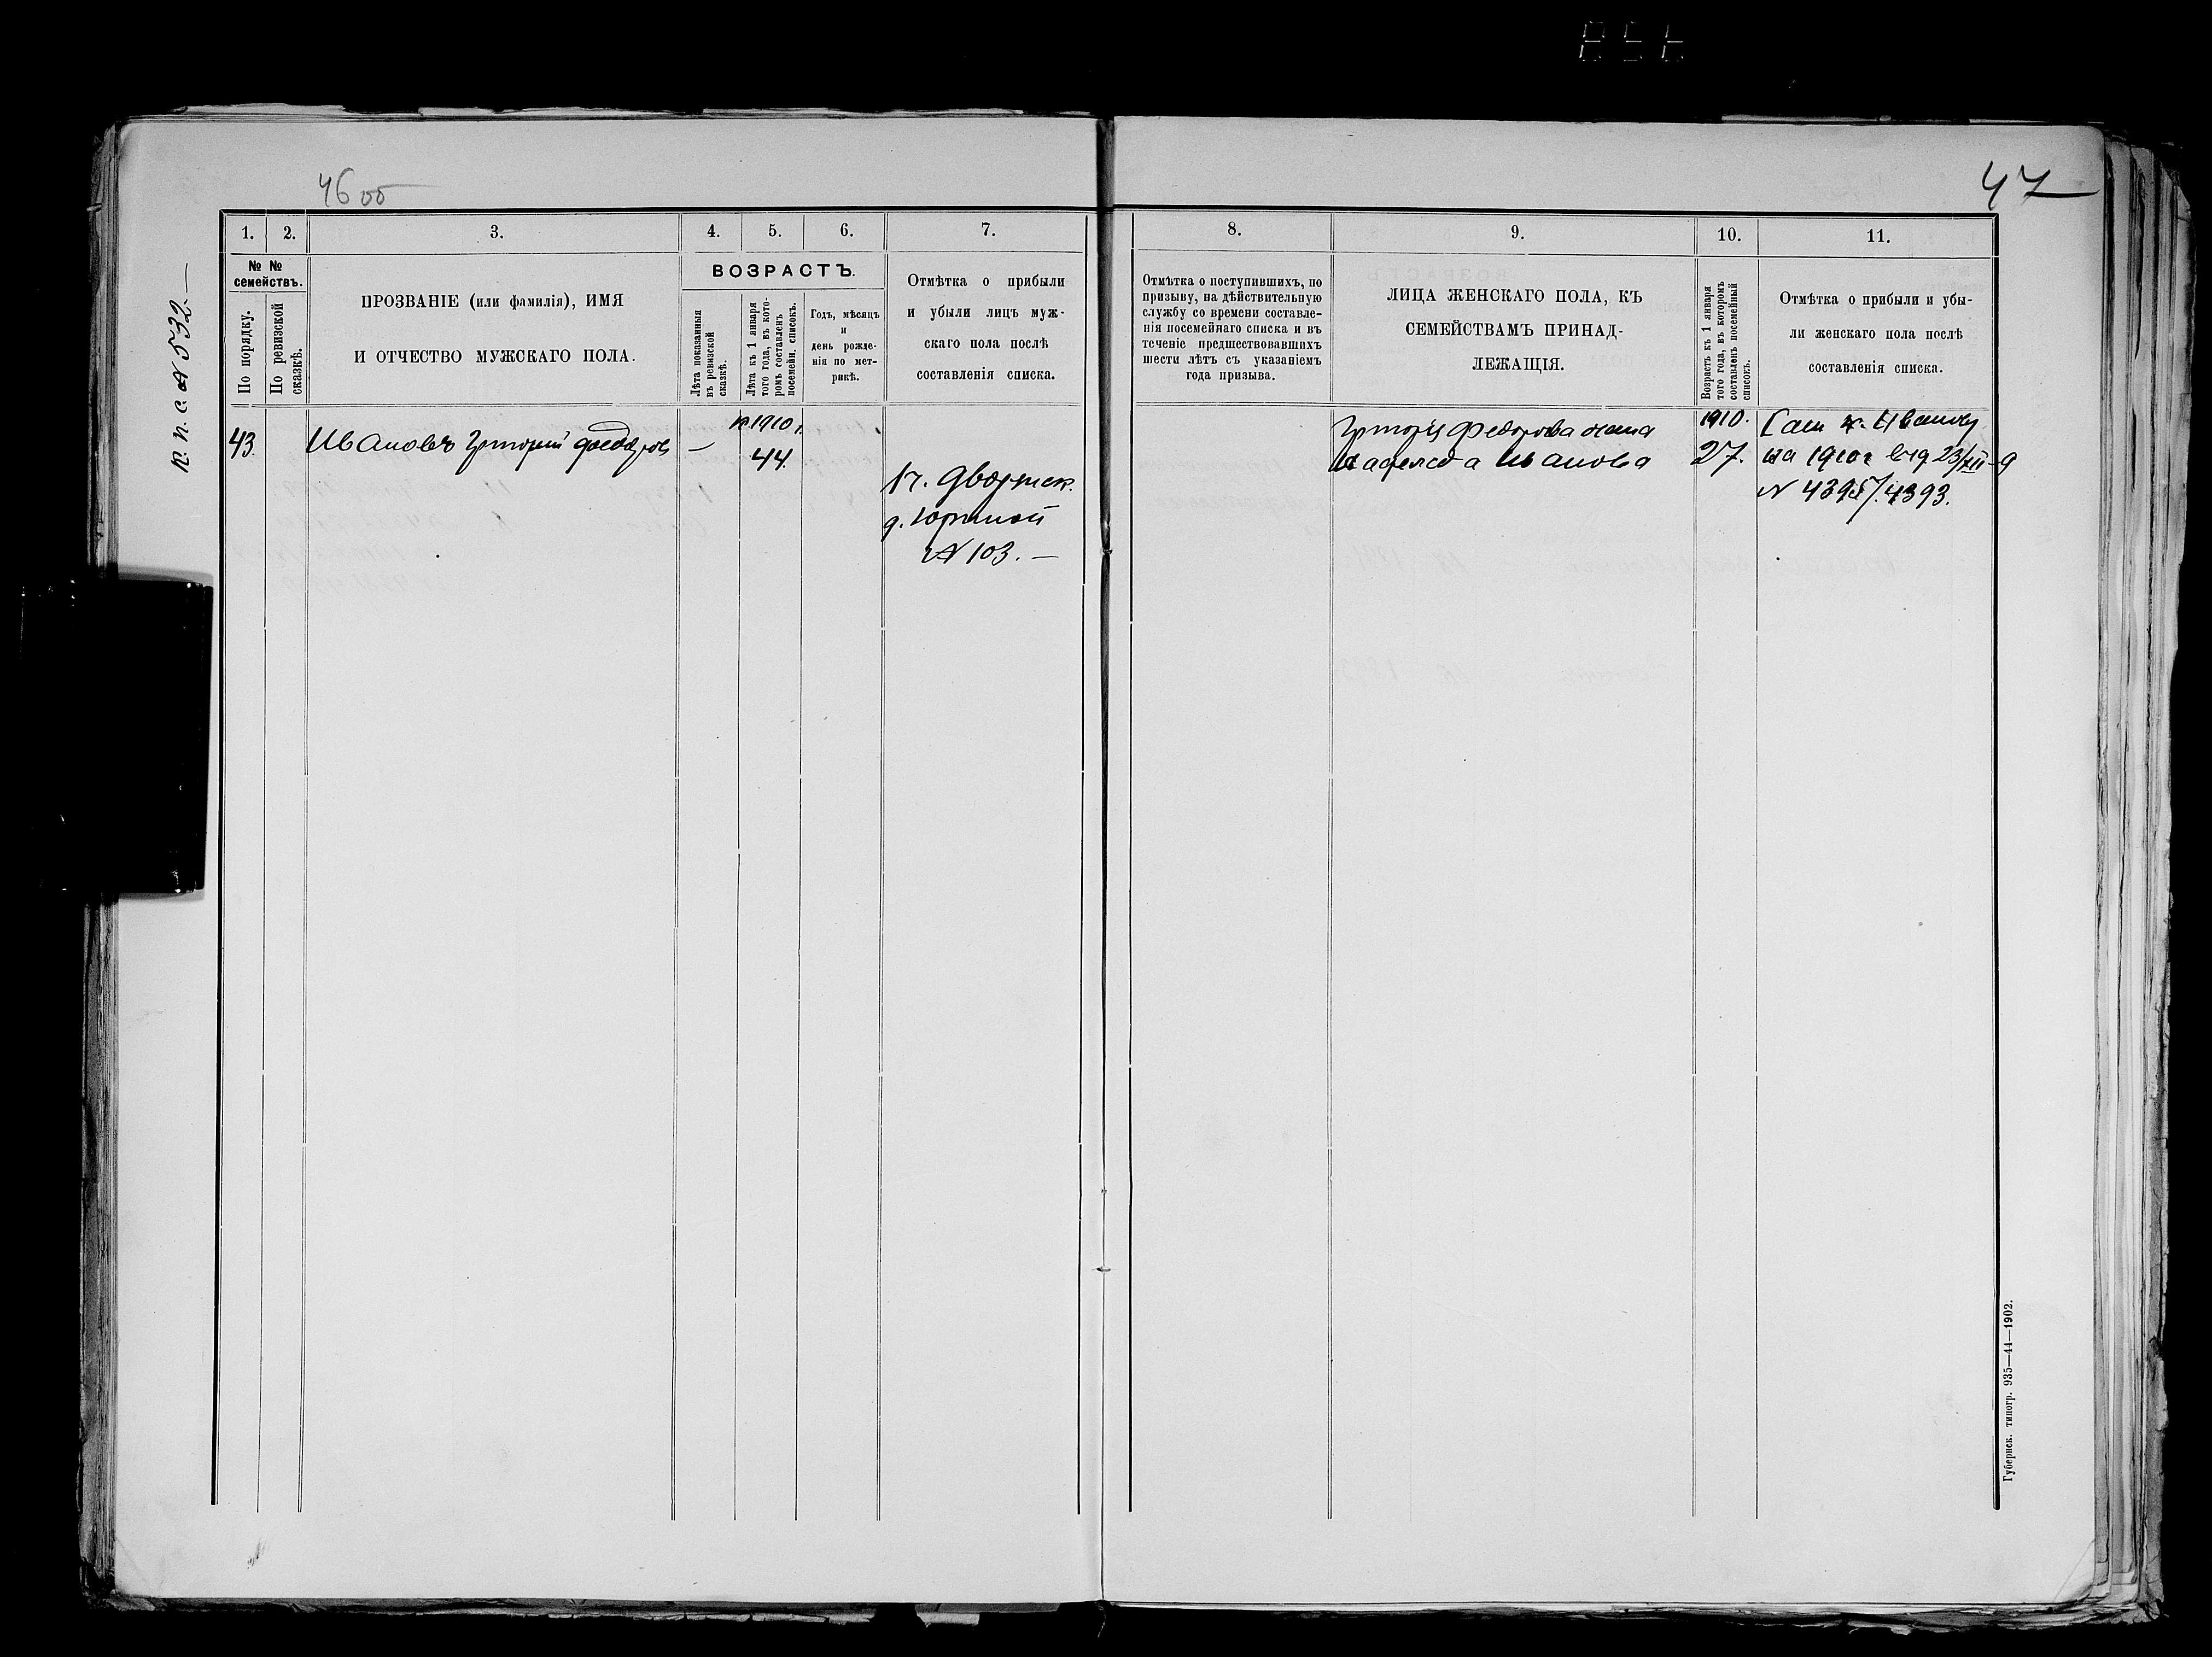 46 об
47
1.
2.
3.
4.
5.
6.
7.
8.
9.
10.
11.
№ №
семействъ.
По порядку.
По ревизской
сказкѣ.
ПРОЗВАНІЕ (или фамилія), ИМЯ
И ОТЧЕСТВО МУЖСКАГО ПОЛА.
ВОЗРАСТЪ.
Лѣта показанныя
въ ревизской
сказкѣ.
Лѣта къ 1 января
того года, въ кото-
ромъ составленъ
посемейн. списокъ.
Годъ, мѣсяцъ
и
день рожде-
нія по мет-
рикѣ.
Отмѣтка о прибыли
и убыли лицъ муж-
скаго пола послѣ
составленія списка.
Отмѣтка о поступившихъ, по
призыву, на дѣйствительную
службу со времени составле-
нія посемейнаго списка и въ
теченіе предшествовавшихъ
шести лѣтъ съ указаніемъ
года призыва.
ЛИЦА ЖЕНСКАГО ПОЛА, КЪ
СЕМЕЙСТВАМЪ ПРИНАД-
ЛЕЖАЩІЯ.
Возрастъ къ 1 января
того года, въ которомъ
составленъ посемейный
списокъ.
Отмѣтка о прибыли и убы-
ли женскаго пола послѣ
составленія списка.
К. п. с. № 532.—
43.
Ивановъ Григорий Федоров
—
к 1910 г.
44.
д. Юрт
№ 103. —
Григорія Федорова жена
Иванова
1910.
27.
Ивановy
на 1910 г 23/XII-9
№ 4393.
Губернск. типогр. 935—44—1902.